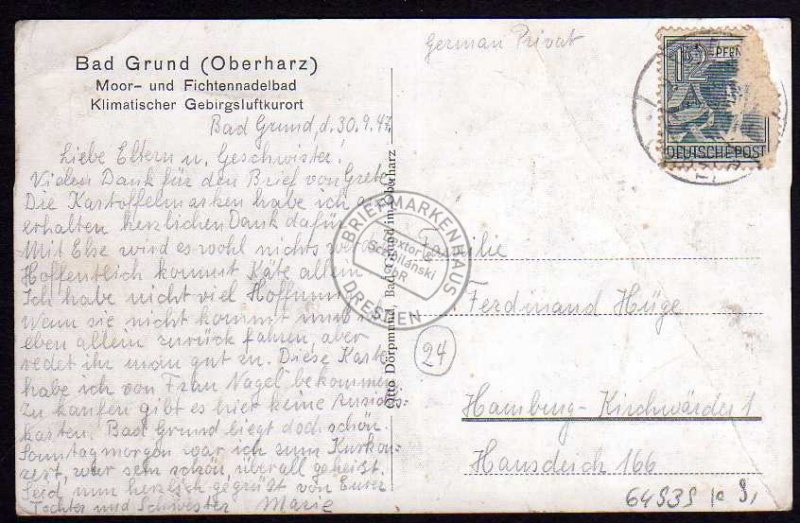 Bad Grund (Oberharz)
Moor- und Fichtennadelbad
Klimatischer Gebirgsluftkurort
Bad Grund, d. 30.9.47
Liebe Eltern u. Geschwister!
Vielen Dank für den Brief von Grete
Die Kartoffelmarken habe ich
erhalten herzlichen Dank dafür
Mit Else wird es wohl nichts
Hoffentlich kommt Käte allein
Ich habe nicht viel Hoffnun
Wenn sie nicht kommt muß
eben allein zurück fahren, aber
redet ihr man gut zu. Diese Karte
habe ich von Frau Nagel bekommen
Zu kaufen gibt es hier keine
Karten. Bad Grund liegt doch schön.
Sonntagmorgen war ich zum Kurkon-
zert, war sehr schön, überall geheizt.
Seid nun herzlich gegrüßt von Eurer
Tochter und Schwester Marie
Otto Dörpmund, Bad Grund im Oberharz
German Privat
12 PFENN
DEUTSCHE POST
BRIEFMARKENHAUS
DRESDEN
Familie
Ferdinand Hüge
24
Hamburg-Kirchwärder 1
Hausdeich 166